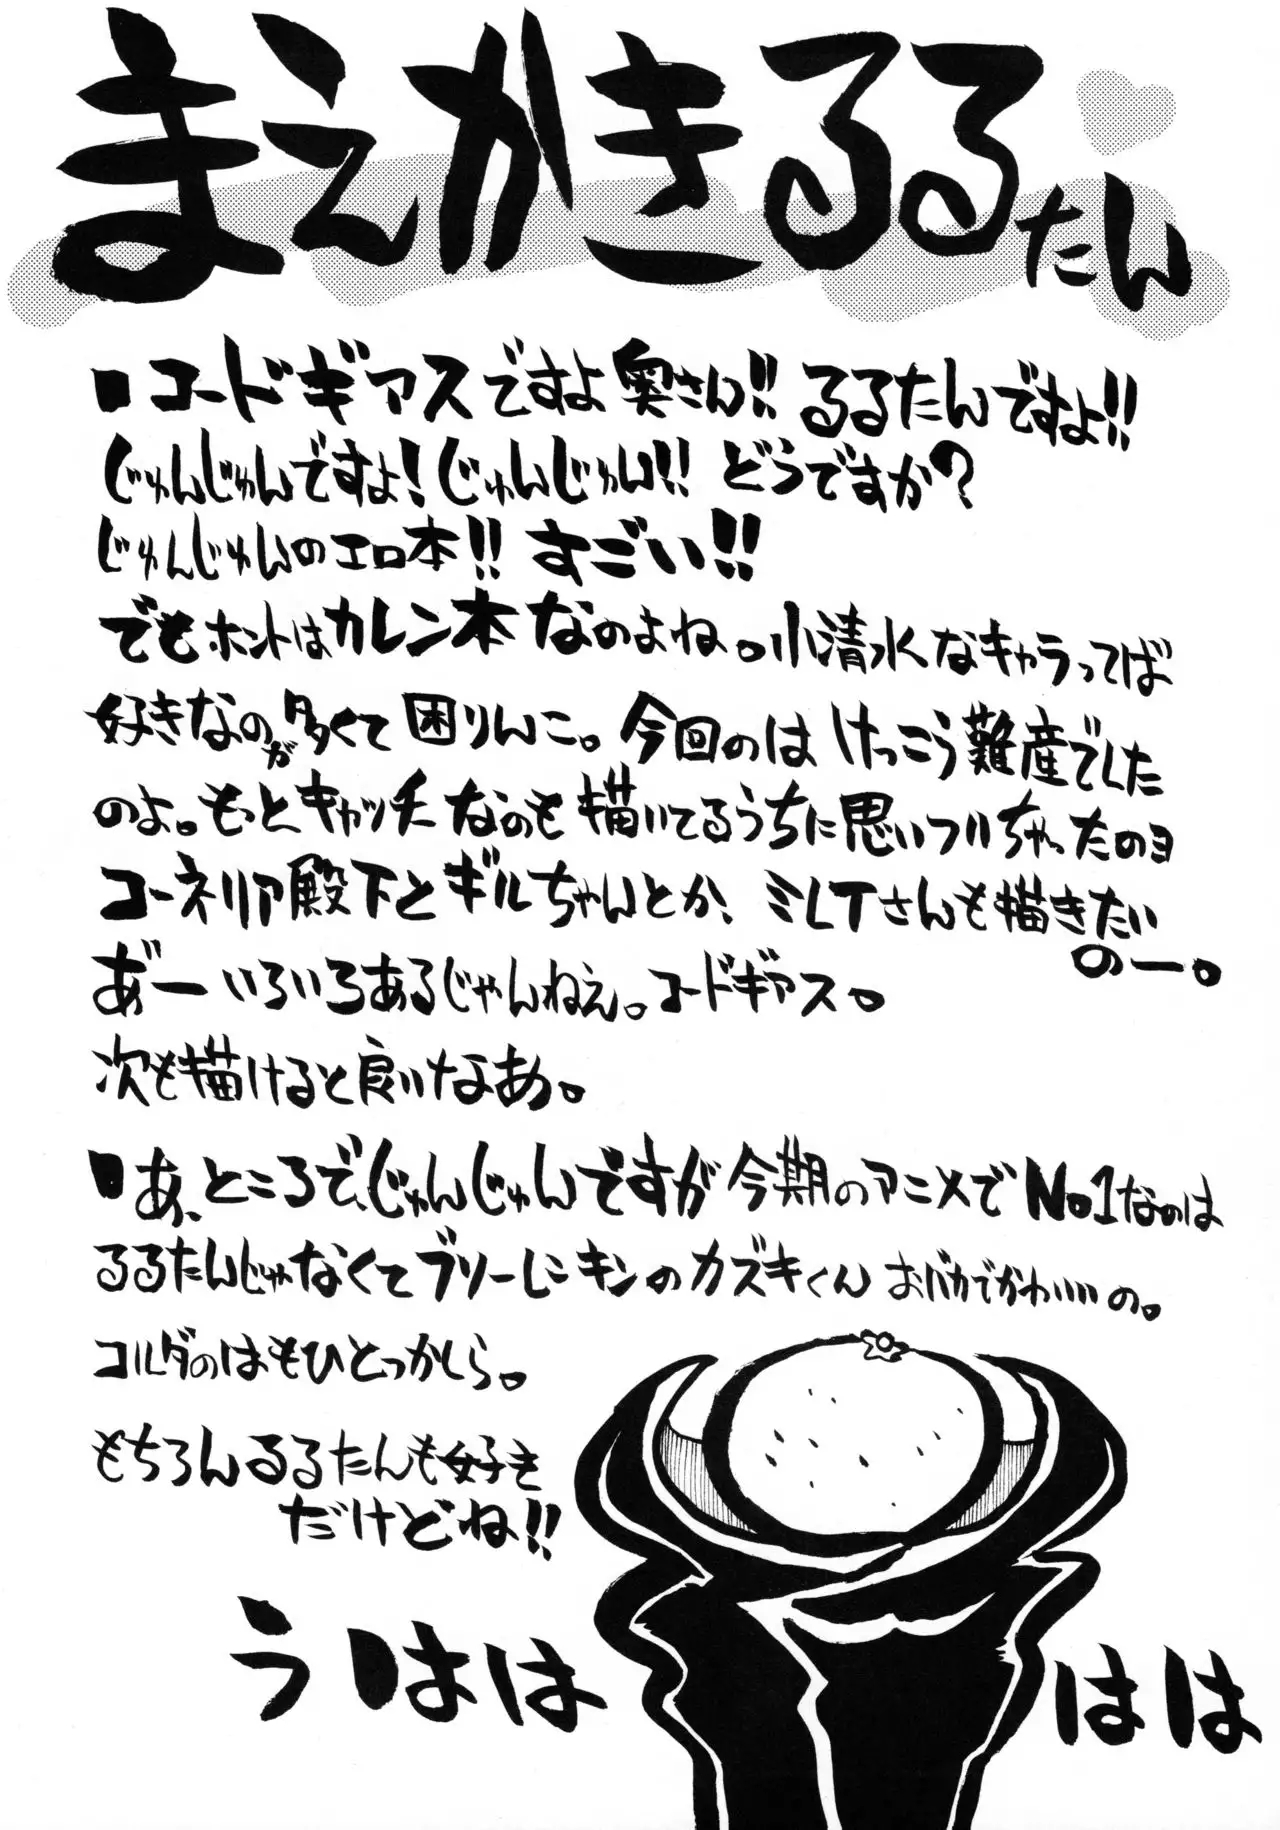 まえかきるるたん
■コードギアスですよ奥さん!! るるたんですよ!!
じゅんじゅんですよ!じゅんじゅん!! どうですか?
じゅんじゅんのエロ本!! すごい!!
でもホントはカレン本なのよね。小清水なキャラってば
好きなのが多くて困りんこ。今回のはけっこう難産でした
のよ。もっとキャッチなのも描いてるうちに思いついちゃったのョ
コーネリア殿下とギルちゃんとか、ミレイさんも描きたい
のー。
あ゛ーいろいろあるじゃんねえ。コードギアス。
次も描けると良いなあ。
■あ、ところで、じゅんじゅんですが今期のアニメでNo.1なのは
るるたんじゃなくてブリーレンキンのカズキくん おバカでかわいいの。
コルダのはもひとつかしら。
もちろんるるたんも好き
だけどね!!
うははははは